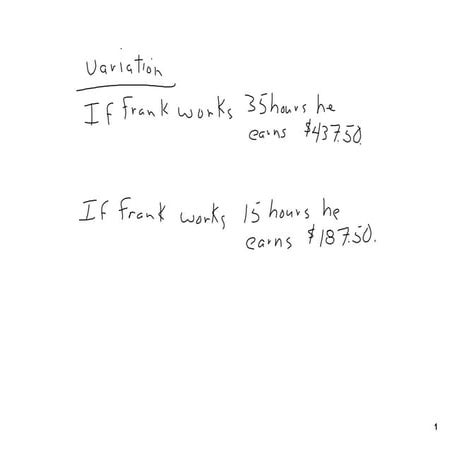 Variation
If Frank works 35 hours he
earns $437.50.
If Frank works 15 hours he
earns $187.50.
1